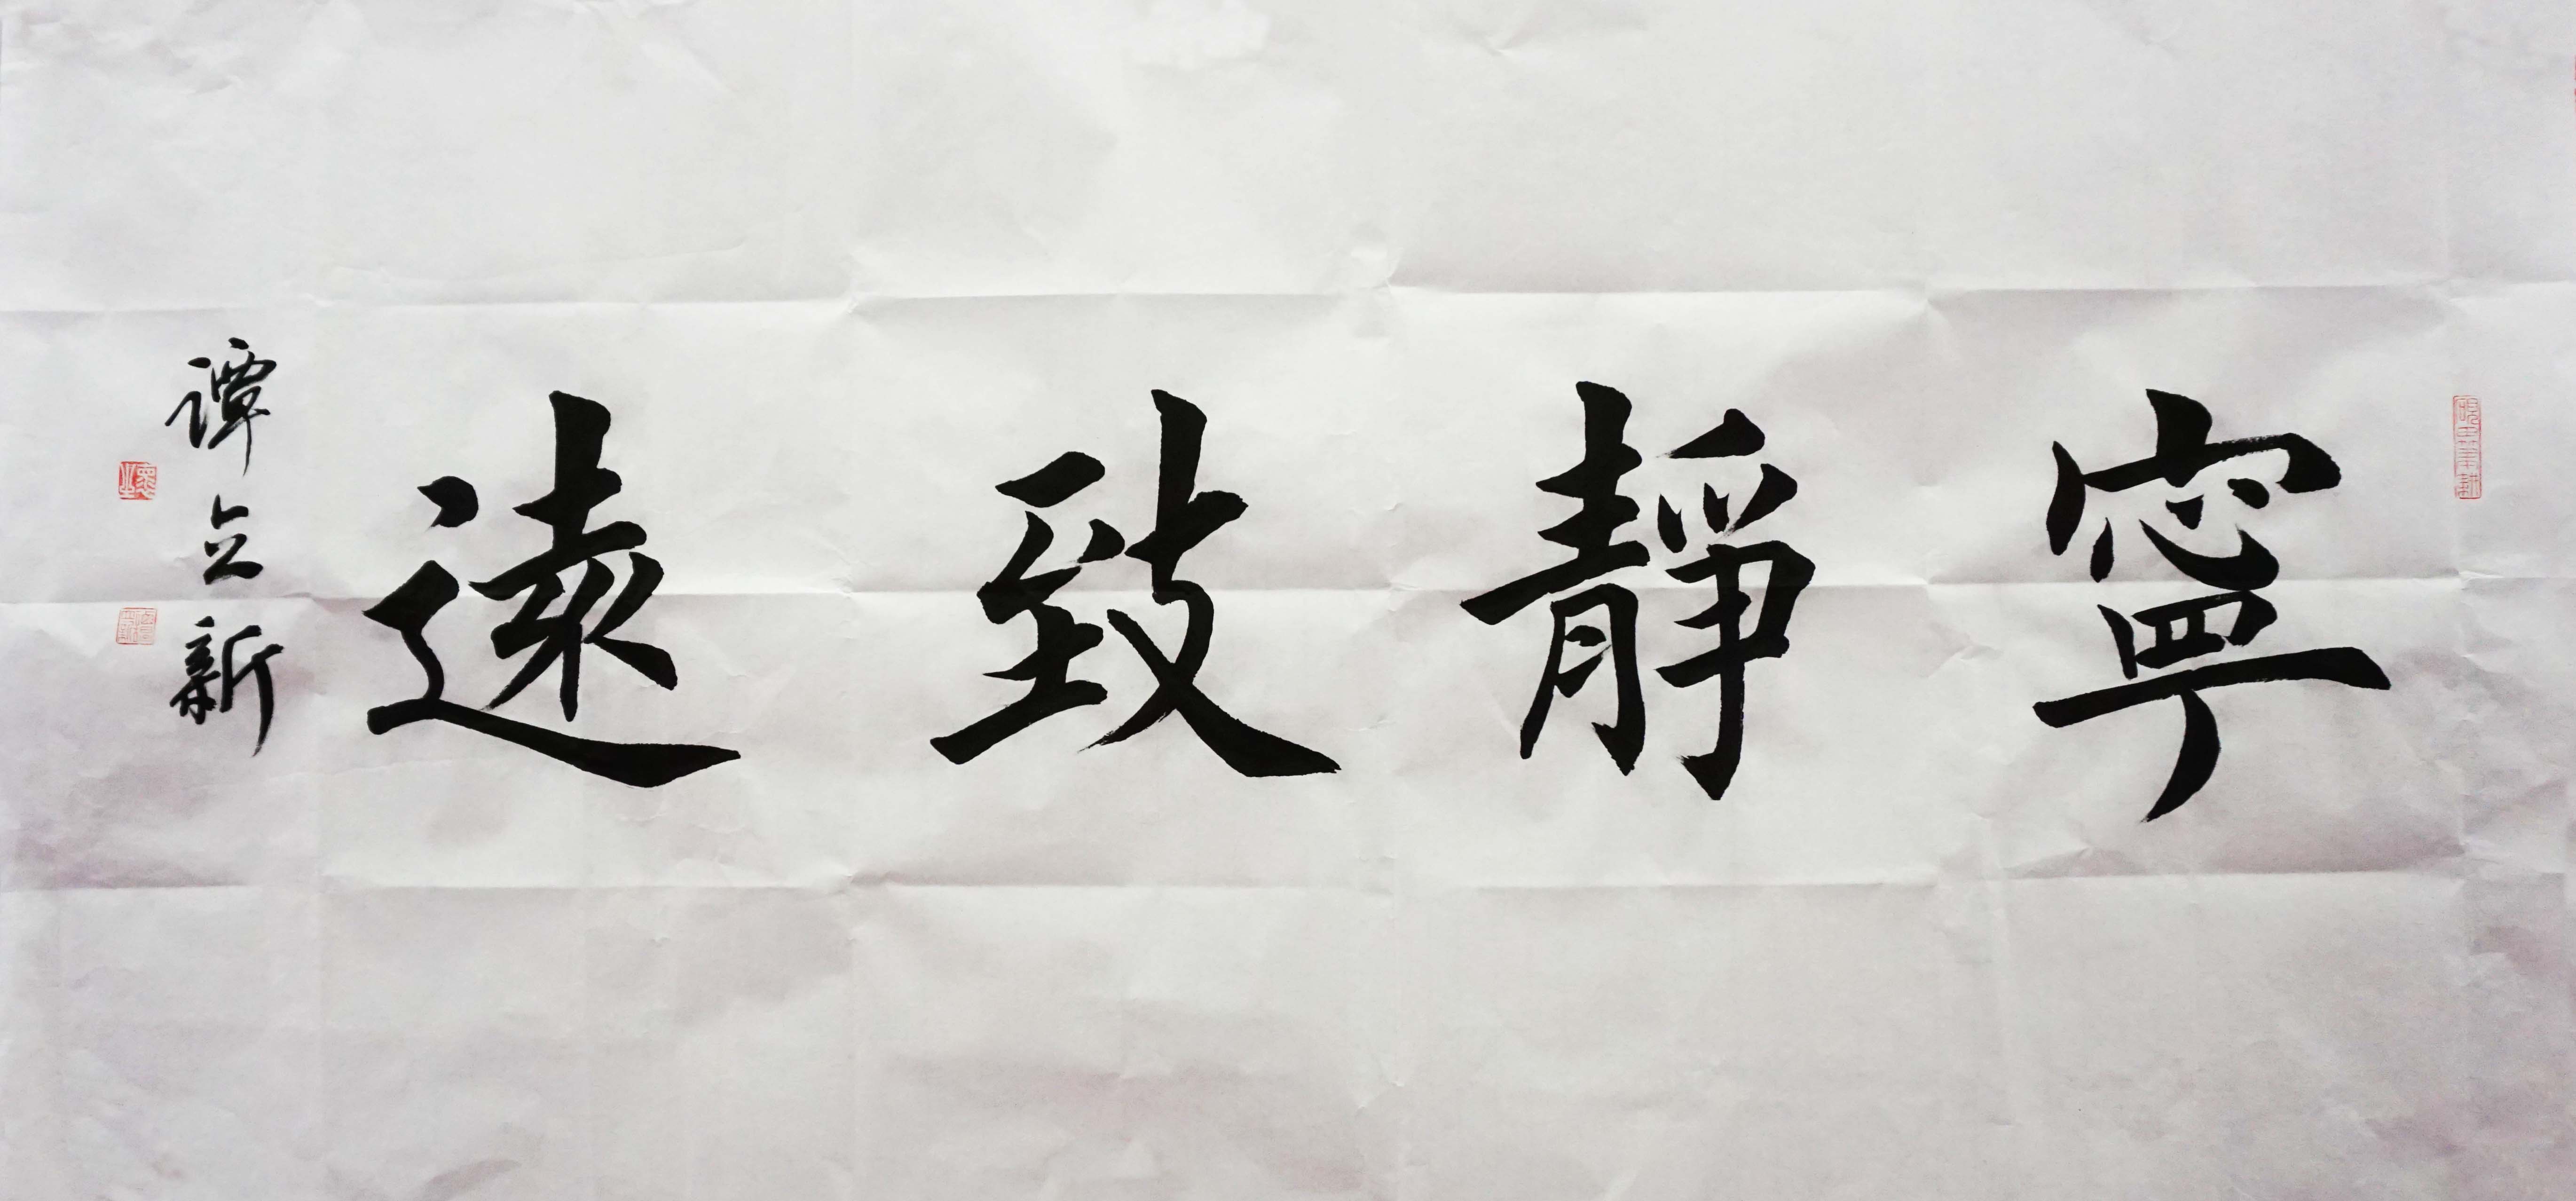 寧靜致遠
譚立新